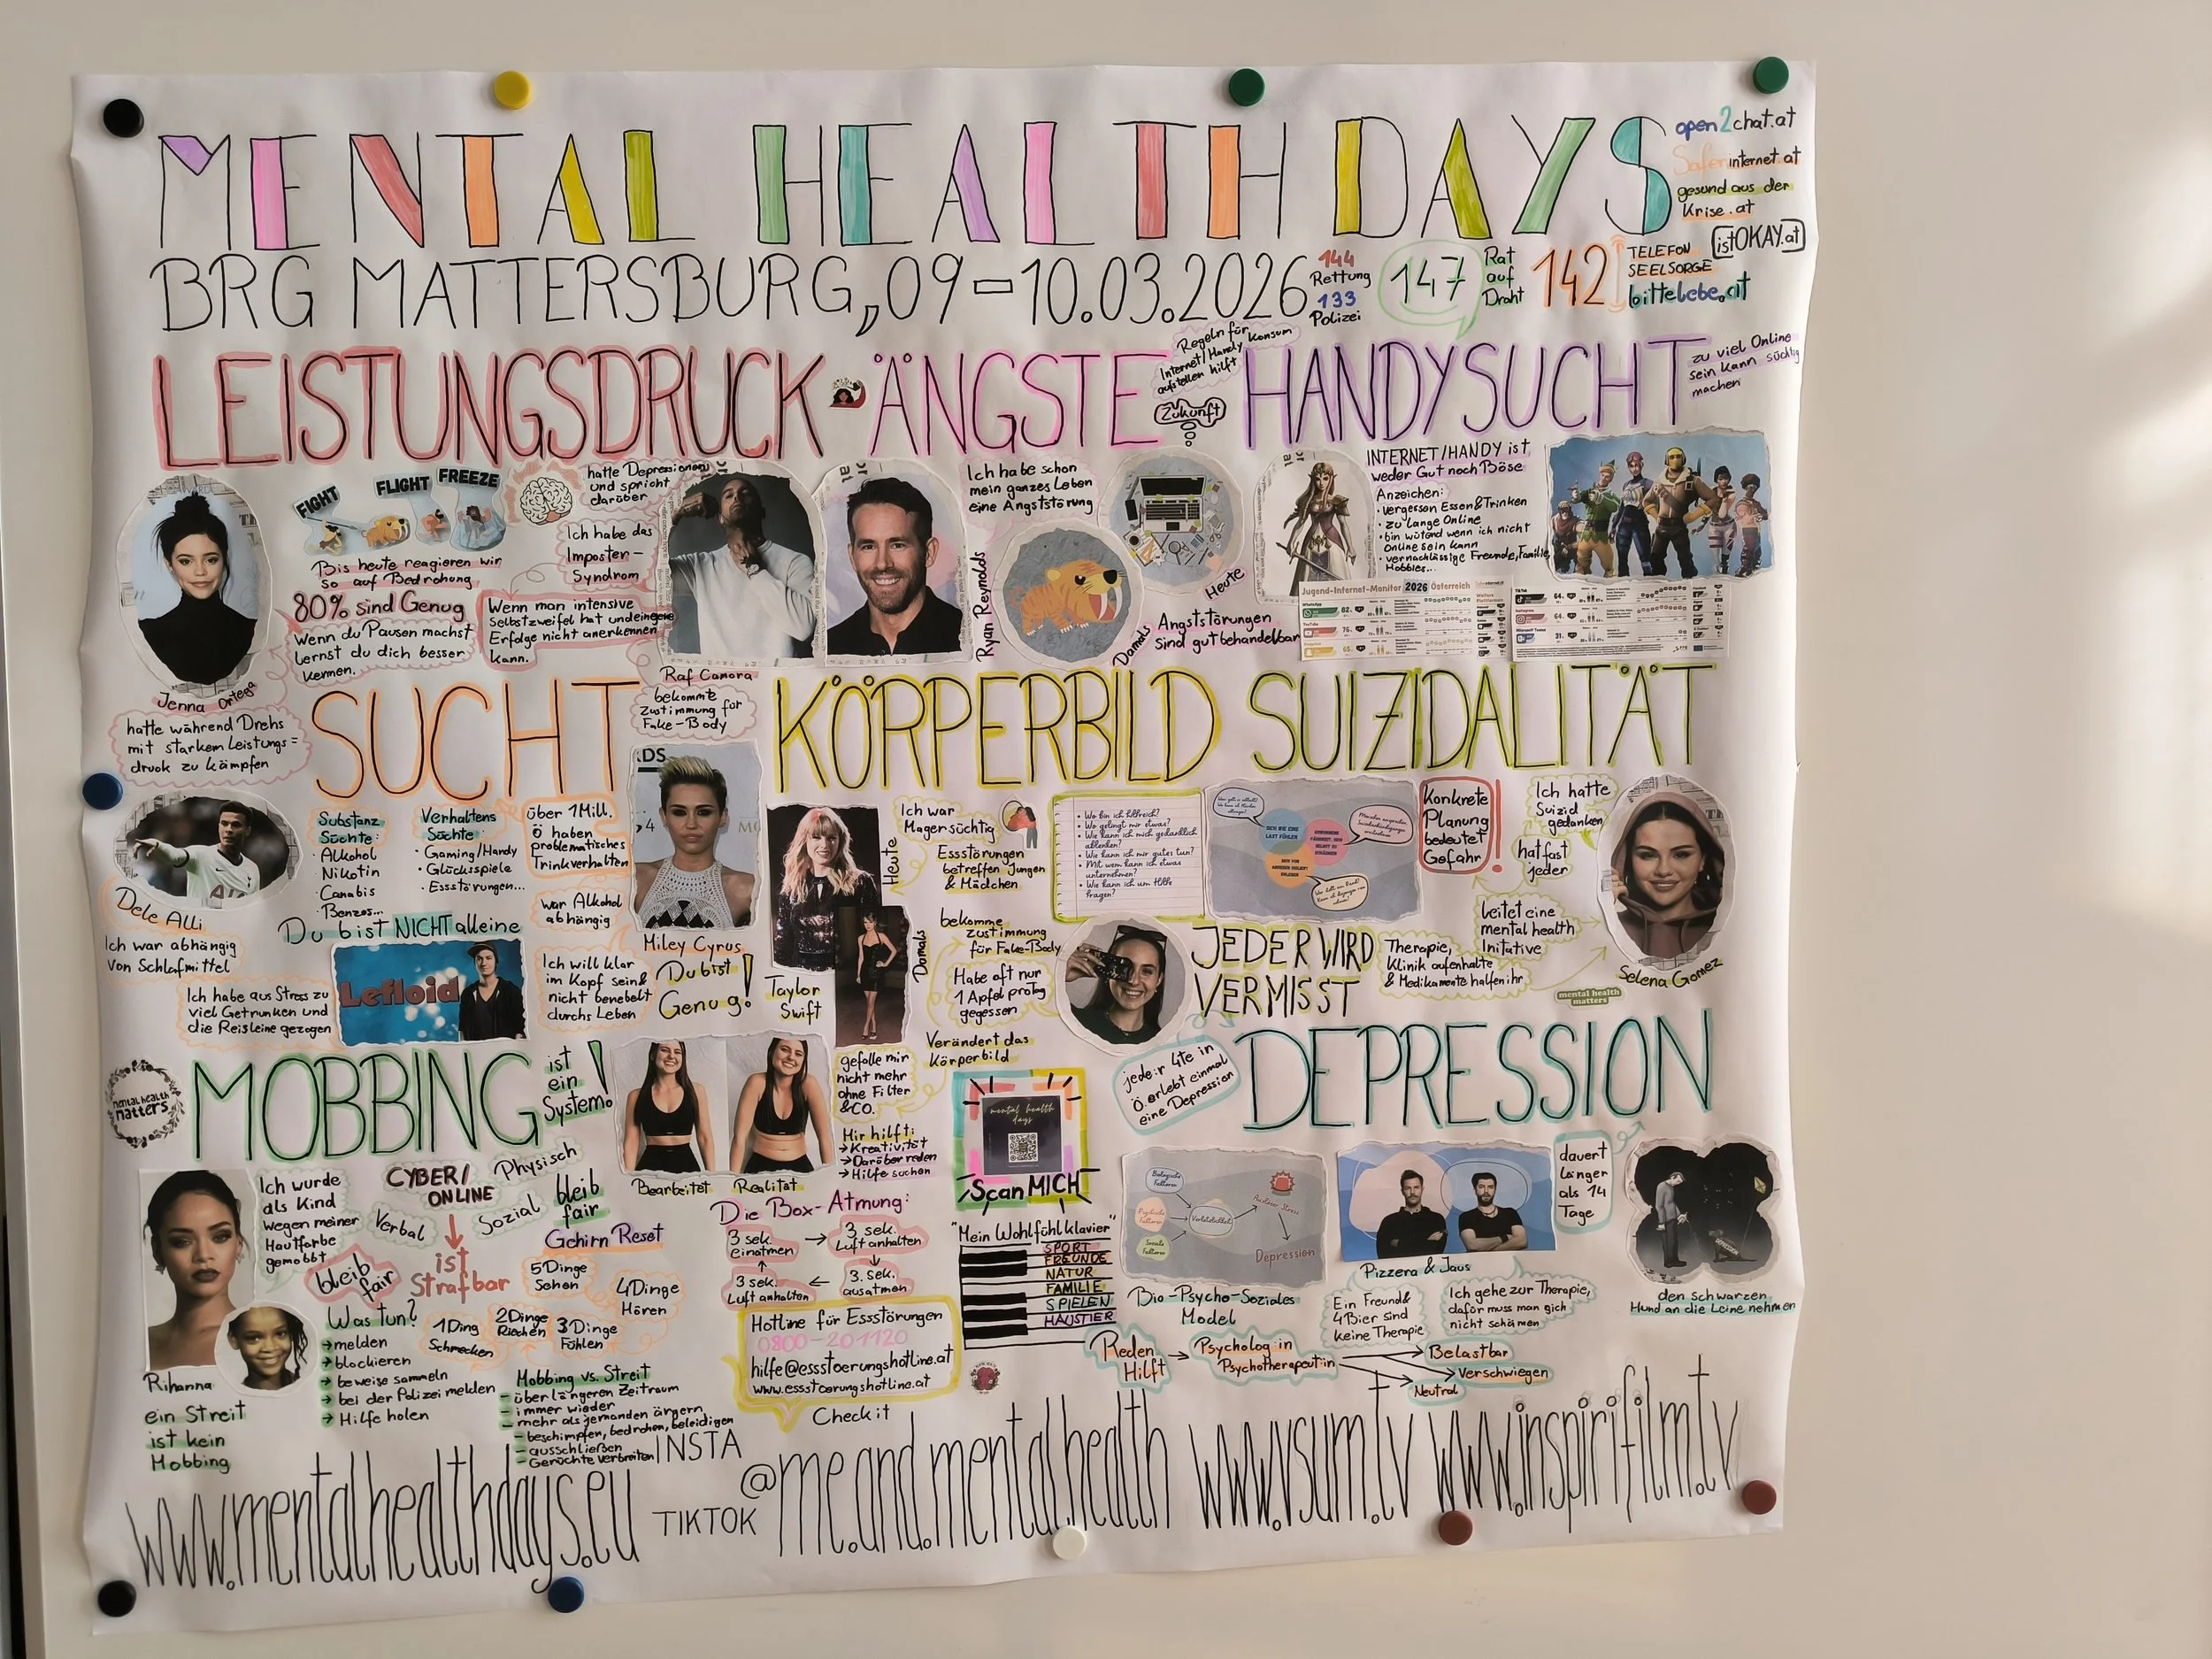 MENTAL HEALTH DAYS
open2chat.at
Saferinternet.at
gesund aus der
Krise.at
istOKAY.at
BRG MATTERSBURG, 09-10.03.2026
144
Rettung
133
Polizei
147
Rat
auf
Draht
142
TELEFON
SEELSORGE
bittelebe.at
LEISTUNGSDRUCK • ÄNGSTE
Regeln für
Internet/Handy Konsum
aufstellen hilft
Zukunft
HANDYSUCHT
zu viel Online
sein kann süchtig
machen
FIGHT
FLIGHT
FREEZE
Bis heute reagieren wir
so auf Bedrohung
80% sind Genug
Wenn du Pausen machst
lernst du dich besser
kennen.
Jenna Ortega
hatte während Drehs
mit starkem Leistungs=
druck zu kämpfen
hatte Depressionen
und spricht
darüber
Ich habe das
Imposter-
Syndrom
Wenn man intensive
Selbstzweifel hat und eingene
Erfolge nicht anerkennen
kann.
Raf Camora
bekommte
Zustimmung für
Fake-Body
Ryan Reynolds
Ich habe schon
mein ganzes Leben
eine Angststörung
Heute
Damals
Angststörungen
sind gut behandelbar
INTERNET/HANDY ist
weder Gut noch Böse
Anzeichen:
• vergessen Essen & Trinken
• zu lange Online
• bin wütend wenn ich nicht
Online sein kann
• vernachlässige Freunde, Familie,
Hobbies...
Jugend-Internet-Monitor 2026 Österreich
SUCHT
Dele Alli
Ich war abhängig
von Schlafmittel
Substanz
Süchte:
• Alkohol
Nikotin
• Canabis
• Benzos...
Verhaltens
Süchte:
• Gaming/Handy
• Glücksspiele
• Essstörungen...
über 1 Mill.
Ö haben
problematisches
Trinkverhalten
Du bist NICHT alleine
war Alkohol
abhängig
Miley Cyrus
Ich habe aus Stress zu
viel Getrunken und
die Reisleine gezogen
Lefloid
Ich will klar
im Kopf sein &
nicht benebelt
durchs Leben
Du bist
Genug!
KÖRPERBILD
Taylor
Swift
Heute
Damals
Ich war
Magersüchtig
Essstörungen
betreffen Jungen
& Mädchen
bekomme
zustimmung
für Fake-Body
Habe oft nur
1 Apfel pro Tag
gegessen
Verändert das
Körperbild
gefalle mir
nicht mehr
ohne Filter
& CO.
Mir hilft:
→ Kreativität
→ Darüber reden
→ Hilfe suchen
Bearbeitet
Realität
SUIZIDALITÄT
• Wo bin ich hilfreich?
• Wo gelingt mir etwas?
• Wie kann ich mich gedanklich
ablenken?
• Wie kann ich mir gutes tun?
• Mit wem kann ich etwas
unternehmen?
• Wie kann ich um Hilfe
fragen?
SICH WIE EINE
LAST FÜHLEN
Konkrete
Planung
bedeutet
Gefahr!
Ich hatte
Suizid
gedanken
hat fast
jeder
leitet eine
mental health
Initative
Selena Gomez
JEDER WIRD
VERMISST
Therapie,
Klinik aufenhalte
& Medikamente halfen ihr
mental health
matters
MOBBING
ist
ein
System!
mental health
matters
Ich wurde
als Kind
wegen meiner
Hautfarbe
gemobbt
Rihanna
ein Streit
ist kein
Mobbing
CYBER/
ONLINE
Physisch
Verbal
Sozial
ist
Strafbar
bleib
fair
bleib
fair
Was tun?
→ melden
→ blockieren
→ beweise sammeln
→ bei der Polizei melden
→ Hilfe holen
Gehirn Reset
5 Dinge
Sehen
4 Dinge
Hören
3 Dinge
Fühlen
2 Dinge
Riechen
1 Ding
Schmecken
Mobbing vs. Streit
- über längeren Zeitraum
- immer wieder
- mehr als jemanden ärgern
- beschimpfen, bedrohen, beleidigen
- ausschließen
- Gerüchte verbreiten
Die Box-Atmung:
3 sek.
einatmen
3 sek.
Luft anhalten
3. sek.
ausatmen
3 sek.
Luft anhalten
Hotline für Essstörungen
0800-201120
hilfe@essstoerungshotline.at
www.essstoerungshotline.at
Check it
mental health
days
Scan MICH
"Mein Wohlfühlklavier"
SPORT
FREUNDE
NATUR
FAMILIE
SPIELEN
HAUSTIER
DEPRESSION
jede:r 4te in
Ö. erlebt einmal
eine Depression
Biologische
Faktoren
Psychische
Faktoren
Soziale
Faktoren
Verletzlichkeit
Auslöser Stress
Depression
Bio-Psycho-Soziales
Model
Pizzera & Jaus
Ein Freund &
4 Bier sind
keine Therapie
Ich gehe zur Therapie,
dafür muss man sich
nicht schämen
dauert
länger
als 14
Tage
DEPRESSION
den schwarzen
Hund an die Leine nehmen
Reden
Hilft
Psycholog:in
Psychotherapeut:in
Belastbar
Verschwiegen
Neutral
www.mentalhealthdays.eu
INSTA
TIKTOK
@me.and.mental.health
www.vsum.tv
www.inspirifilm.tv